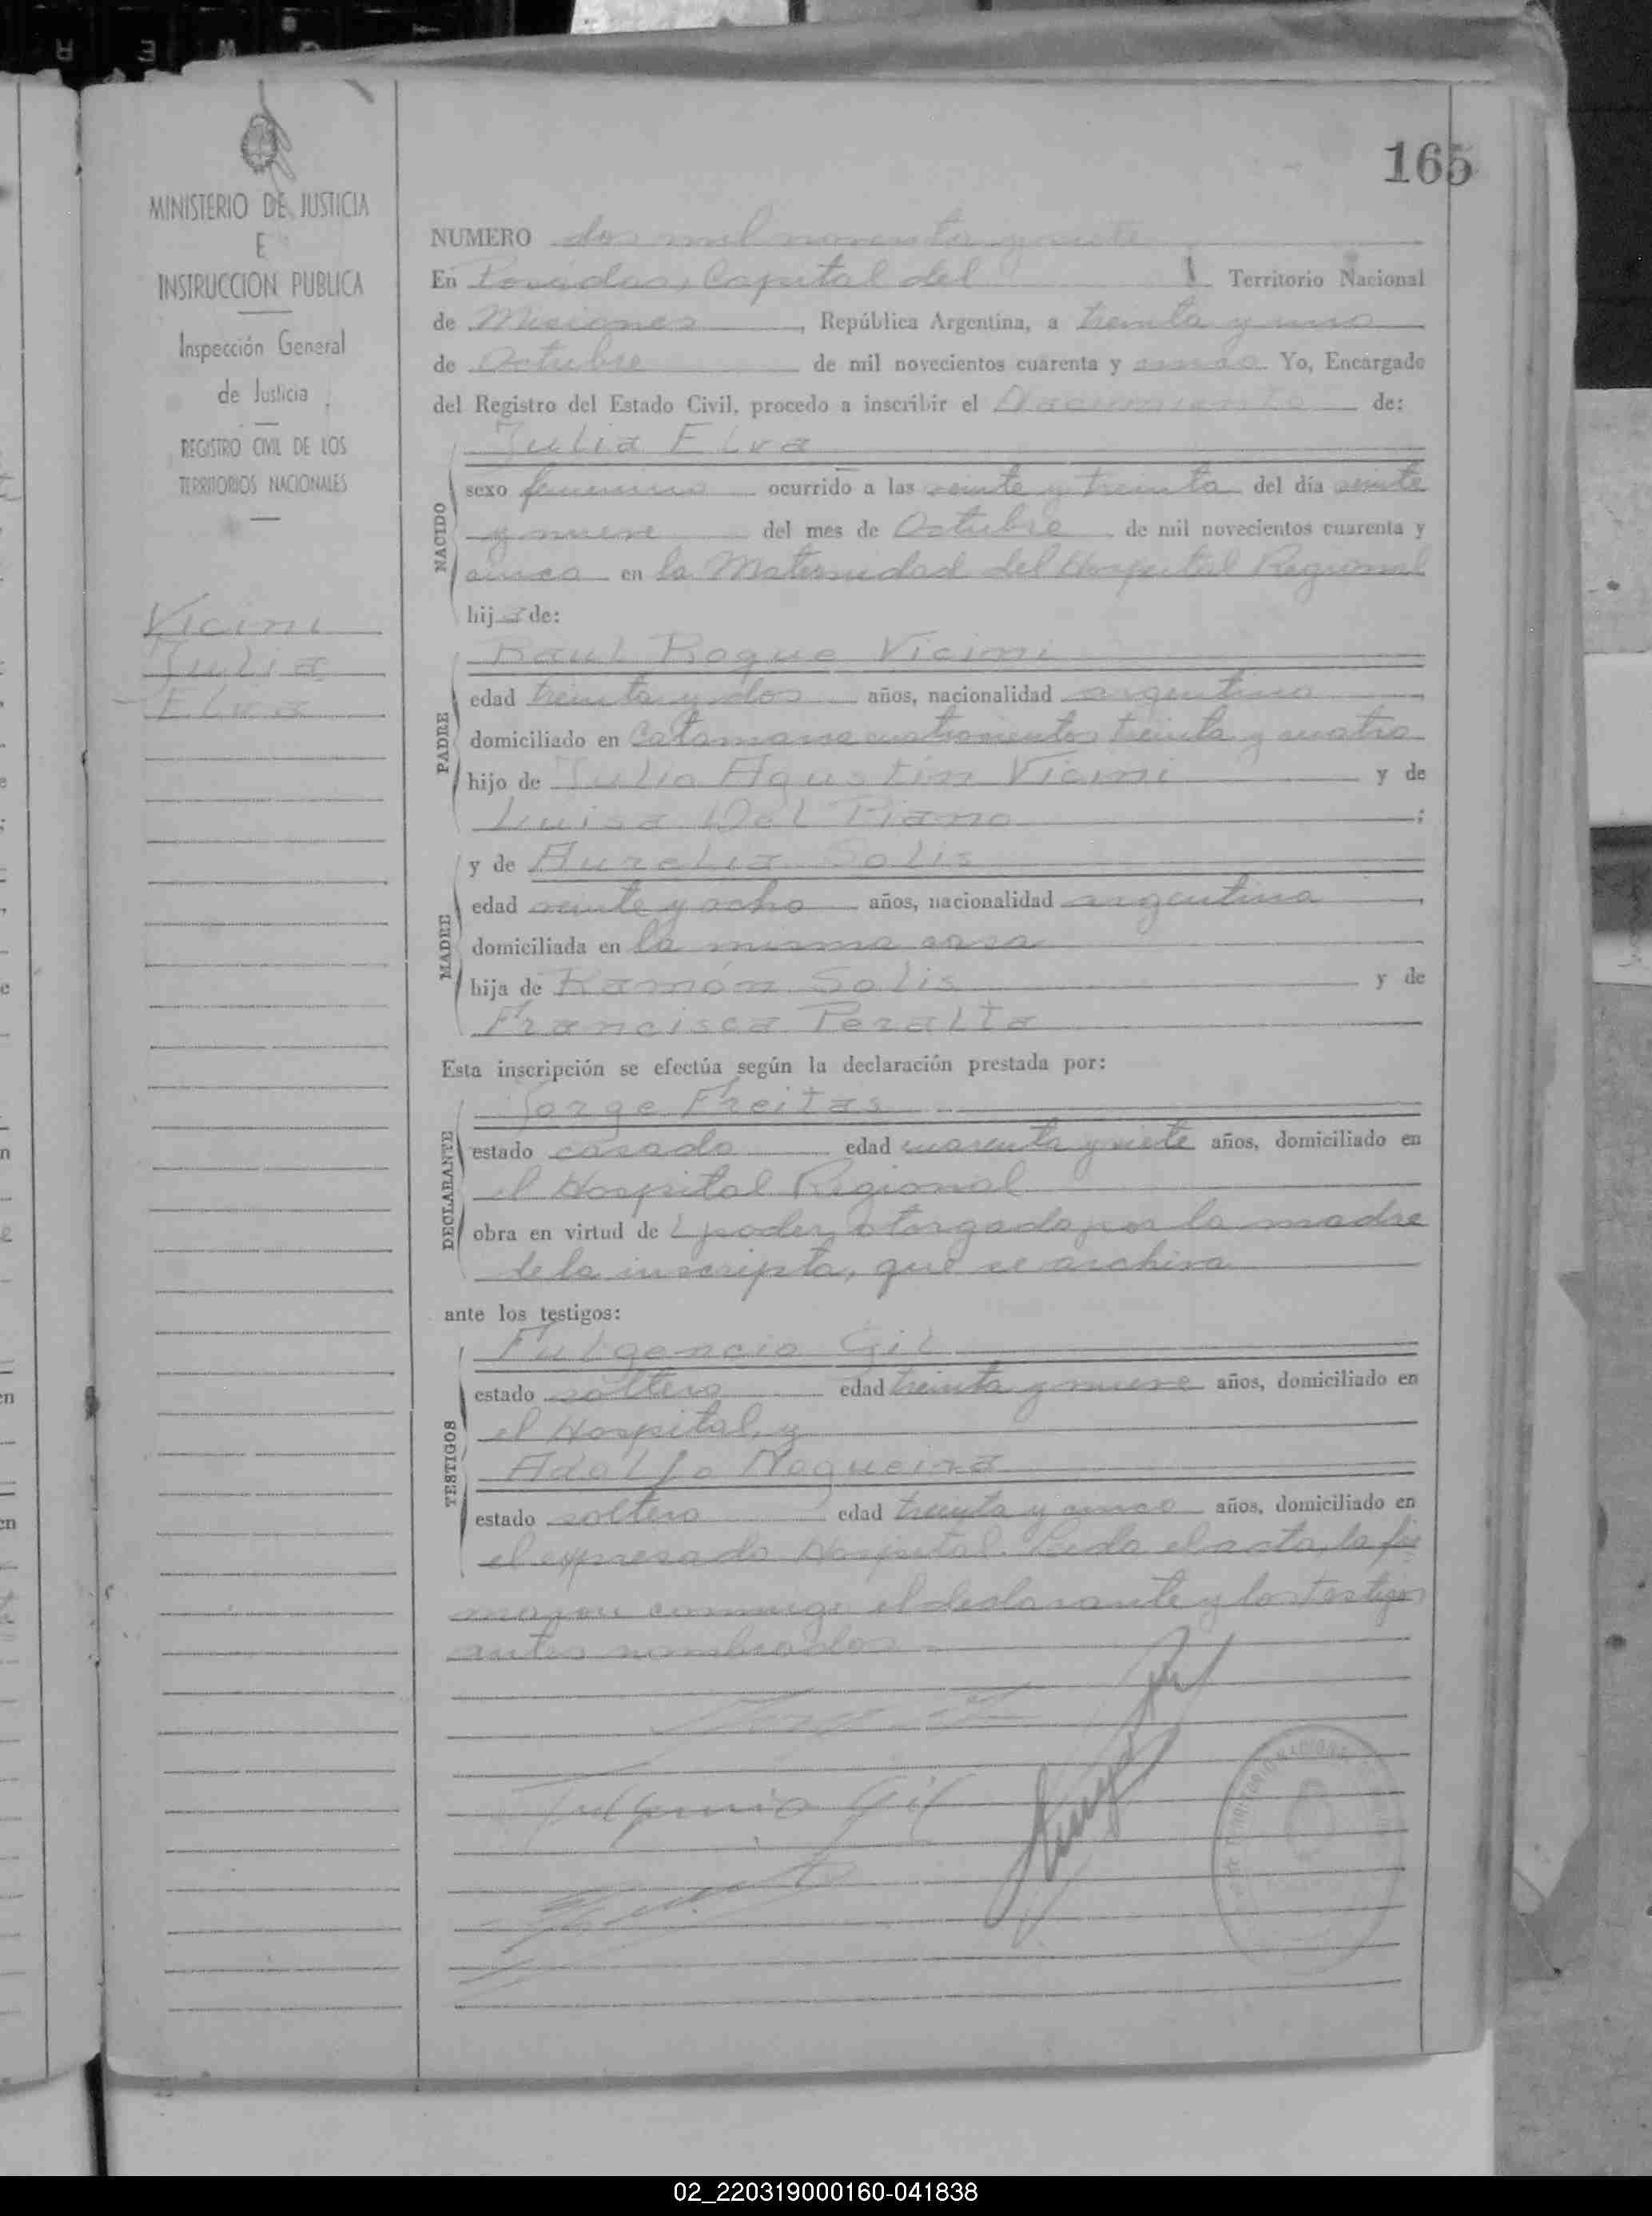 165
MINISTERIO DE JUSTICIA
E
INSTRUCCION PUBLICA
Inspección General
de Justicia
REGISTRO CIVIL DE LOS
TERRITORIOS NACIONALES
Vicini
Julia
Elva
NUMERO dos mil noventa y siete
En Posadas, Capital del Territorio Nacional
de Misiones, República Argentina, a treinta y uno
de Octubre de mil novecientos cuarenta y cinco Yo, Encargado
del Registro del Estado Civil, procedo a inscribir el Nacimiento de:
NACIDO
Julia Elva
sexo femenino ocurrido a las veinte y treinta del día veinte
y nueve del mes de Octubre de mil novecientos cuarenta y
cinco en la Maternidad del Hospital Regional
hija de:
PADRE
Raul Roque Vicini
edad treinta y dos años, nacionalidad argentina,
domiciliado en Catamarca cuatrocientos treinta y cuatro
hijo de Julio Agustin Vicini y de
Luisa Del Piano;
MADRE
y de Aurelia Solis
edad veinte y ocho años, nacionalidad argentina,
domiciliada en la misma casa
hija de Ramón Solis y de
Francisca Peralta
Esta inscripción se efectúa según la declaración prestada por:
DECLARANTE
Jorge Freitas
estado casado edad cuarenta y siete años, domiciliado en
el Hospital Regional
obra en virtud de poder otorgado por la madre
de la inscripta, que se archiva
ante los testigos:
TESTIGOS
Fulgencio Gil
estado soltero edad treinta y nueve años, domiciliado en
el Hospital, y
Adolfo Nogueira
estado soltero edad treinta y cinco años, domiciliado en
el expresado Hospital. Leida el acta, la fir
maron conmigo el declarante y los testigos
antes nombrados
Fulgencio Gil
02_220319000160-041838